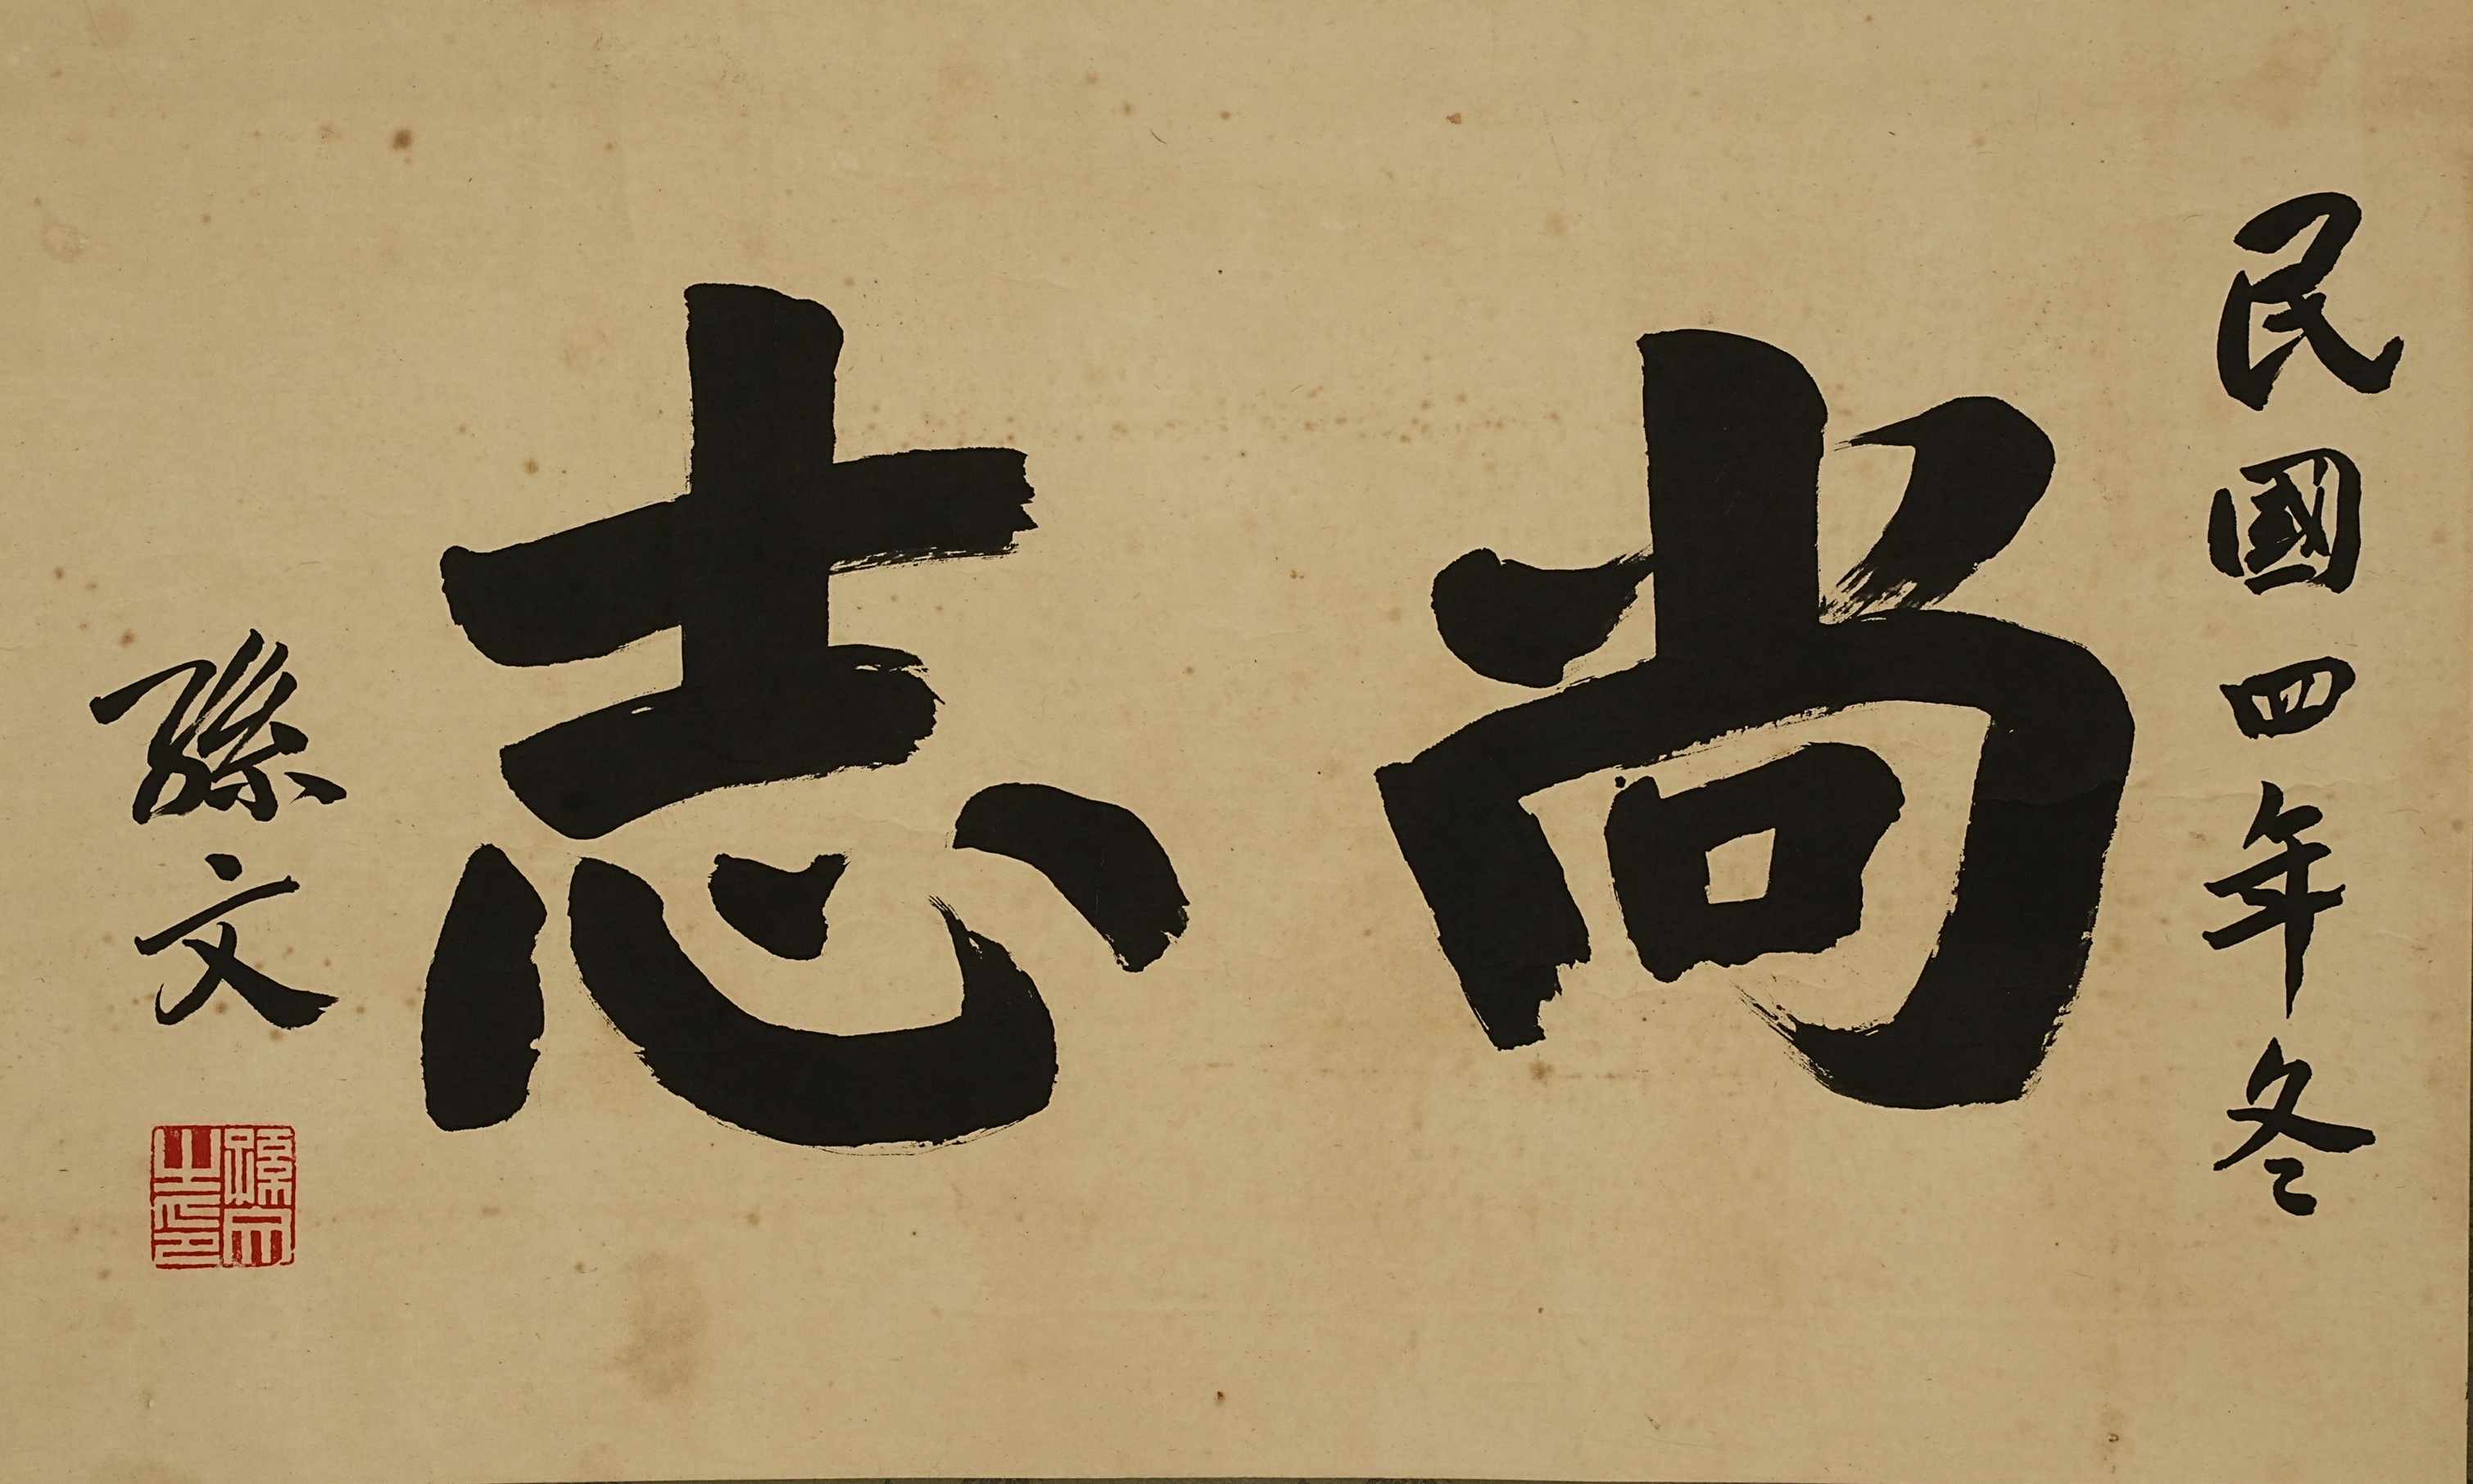 民國四年冬
尚志
孫文
孫文之印